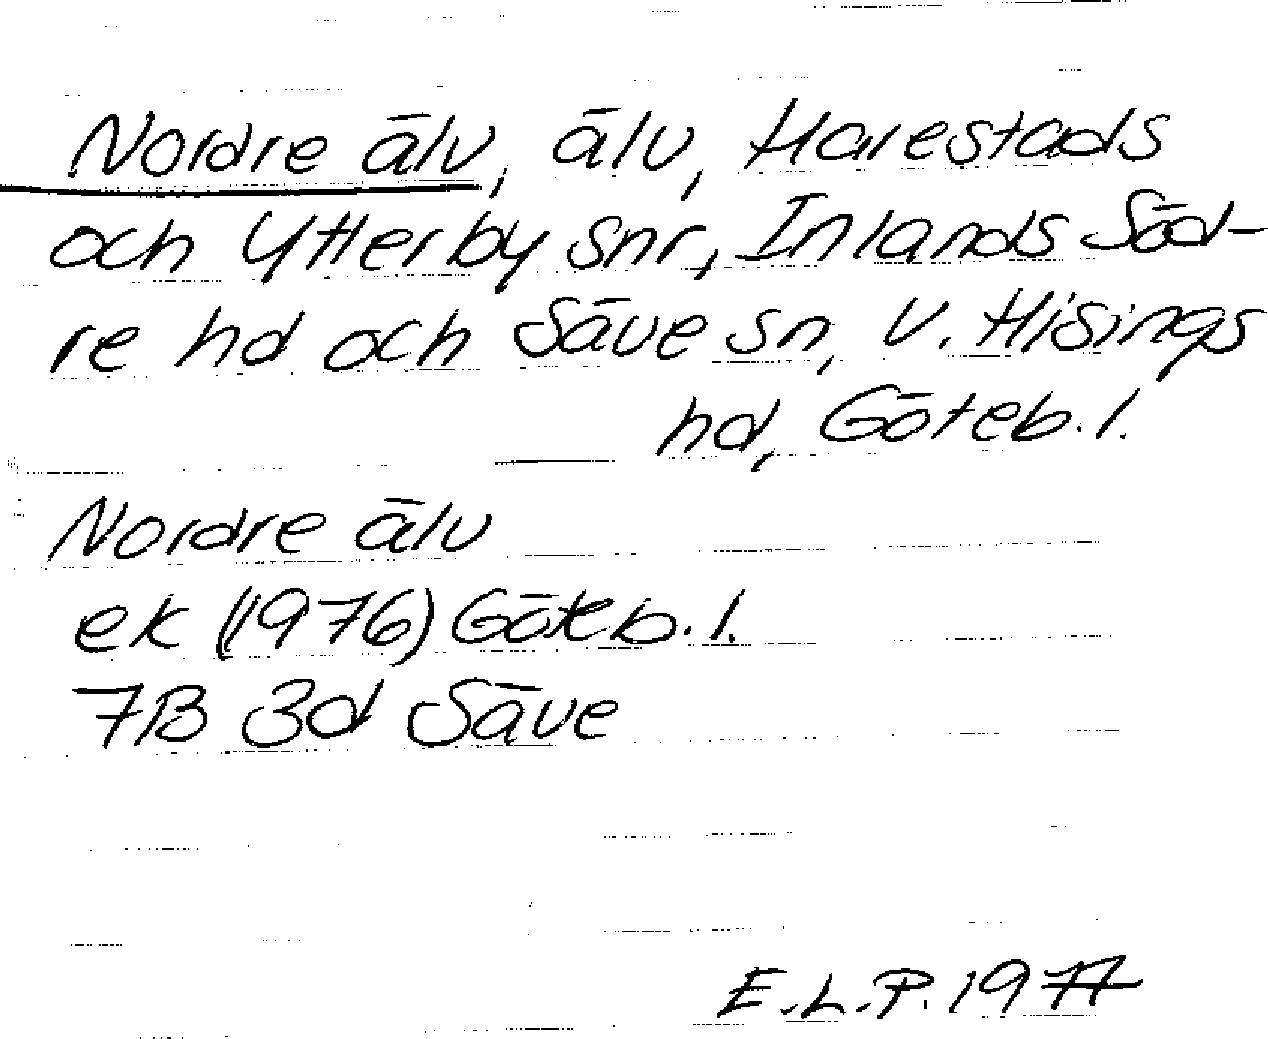 Nordre älv, älv, Harestads
och Ytterby snr, Inlands Söd-
re hd och Säve sn, V. Hisings
hd, Göteb. l.
Nordre älv
ek (1976) Göteb. l.
7B 3d Säve
E.L.P. 1977